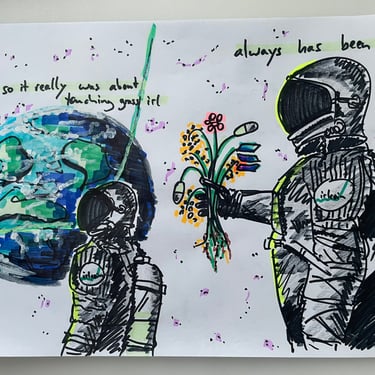 so it really was about
touching grass irl
always has been